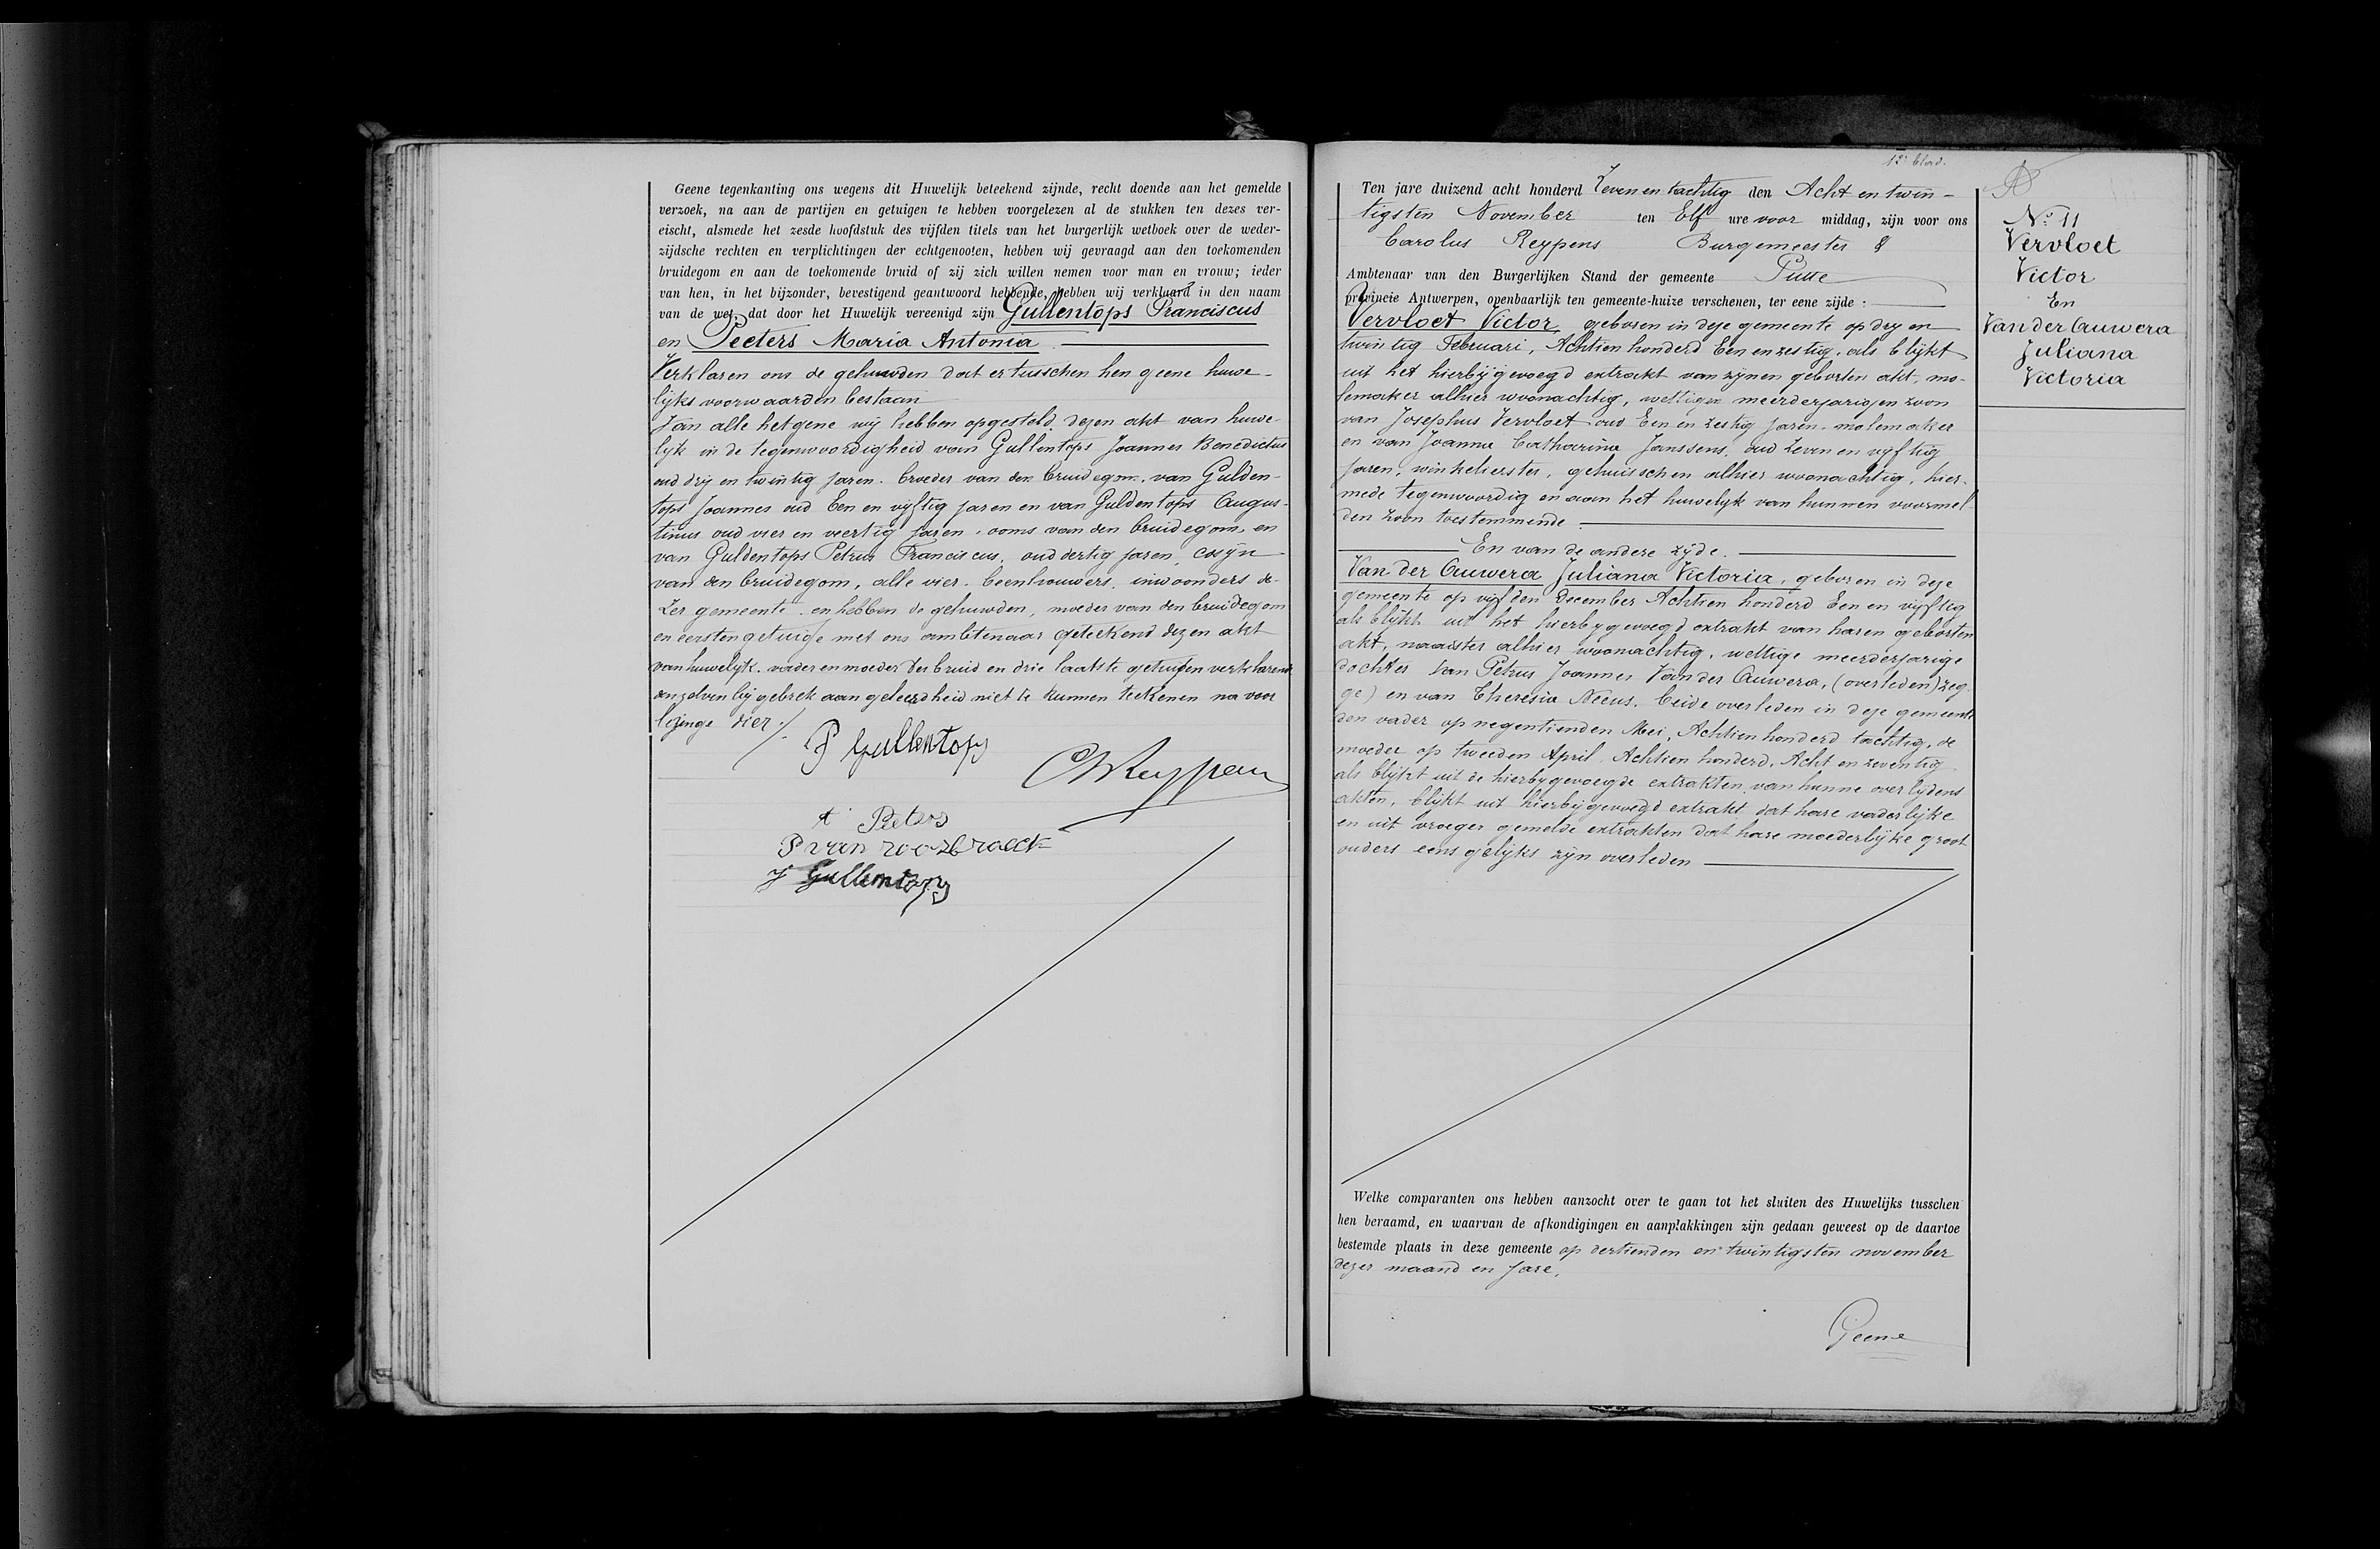 Geene tegenkanting ons wegens dit Huwelijk beteekend zijnde, recht doende aan het gemelde
verzoek, na aan de partijen en getuigen te hebben voorgelezen al de stukken ten dezes ver-
eischt, alsmede het zesde hoofdstuk des vijfden titels van het burgerlijk wetboek over de weder-
zijdsche rechten en verplichtingen der echtgenooten, hebben wij gevraagd aan den toekomenden
bruidegom en aan de toekomende bruid of zij zich willen nemen voor man en vrouw; ieder
van hen, in het bijzonder, bevestigend geantwoord hebbende, hebben wij verklaard in den naam
van de wet, dat door het Huwelijk vereenigd zijn Gullentops Franciscus
en Peeters Maria Antonia
Verklaren ons de gehuwden dat er tusschen hen geene huwe-
lijks voorwaarden bestaan
Van alle hetgene wij hebben opgesteld dezen akt van huwe-
lijk in de tegenwoordigheid van Gullentops Joannes Benedictus
oud drij en twintig jaren. broeder van den bruidegom, van Gulden-
tops Joannes oud Een en vijftig jaren en van Guldentops Augus-
tinus oud vier en veertig jaren, ooms van den bruidegom, en
van Guldentops Petrus Franciscus, oud dertig jaren, cosijn
van den bruidegom, alle vier beenhouwers, inwoonders de-
zer gemeente. en hebben de gehuwden, moeder van den bruidegom
en eersten getuige met ons ambtenaar geteekend dezen akt
van huwelijk. vader en moeder der bruid en drie laatste getuigen verklarende
zulven bij gebrek aan geleerdheid niet te kunnen teekenen na voor
lezinge dier ./.
F Gullentops
C Reypens
A Peeters
P van roosbroeck
J Gullentops
12e blad.
Ten jare duizend acht honderd Zeven en tachtig den Acht en twin-
tigsten November ten Elf ure voor middag, zijn voor ons
Carolus Reypens Burgemeester
Ambtenaar van den Burgerlijken Stand der gemeente Putte
provincie Antwerpen, openbaarlijk ten gemeente-huize verschenen, ter eene zijde :
Vervloet Victor geboren in deze gemeente op drij en
twintig Februari, Achtien honderd Een en zestig, als blijkt
uit het hierbij gevoegd extrakt van zijnen geborten akt, mo-
lemaker alhier woonachtig, wettigen meerderjarigen zoon
van Josephus Vervloet oud Een en zestig jaren. molemaker
en van Joanna Catharina Janssens, oud Zeven en vijftig
jaren, winkelierster, gehuisschen alhier woonachtig, hier-
mede tegenwoordig en aan het huwelijk van hunnen voormel-
den zoon toestemmende
En van de andere zijde.
Van der Auwera Juliana Victoria, geboren in deze
gemeente op vijfden December Achtien honderd Een en vijftig
als blijkt uit het hierbijgevoegd extrakt van haren geborten
akt, naaister alhier woonachtig, wettige meerderjarige
dochter van Petrus Joannes Van der Auwera, (overleden) zeg-
ge) en van Theresia Neeus. beide overleden in deze gemeente
den vader op negentienden Mei, Achtien honderd tachtig, de
moeder op tweeden April Achtien honderd, Acht en zeventig
als blijkt uit de hierbijgevoegde extrakten van hunne overlijdens
akten, blijkt uit hierbijgevoegd extrakt dat hare vaderlijke
en uit vroeger gemelde extrakten dat hare moederlijke groot
ouders eens gelijks zijn overleden
Welke comparanten ons hebben aanzocht over te gaan tot het sluiten des Huwelijks tusschen
hen beraamd, en waarvan de afkondigingen en aanplakkingen zijn gedaan geweest op de daartoe
bestemde plaats in deze gemeente op dertienden en twintigsten november
dezer maand en jare,
Geene
No 11
Vervloet
Victor
En
Van der Auwera
Juliana
Victoria